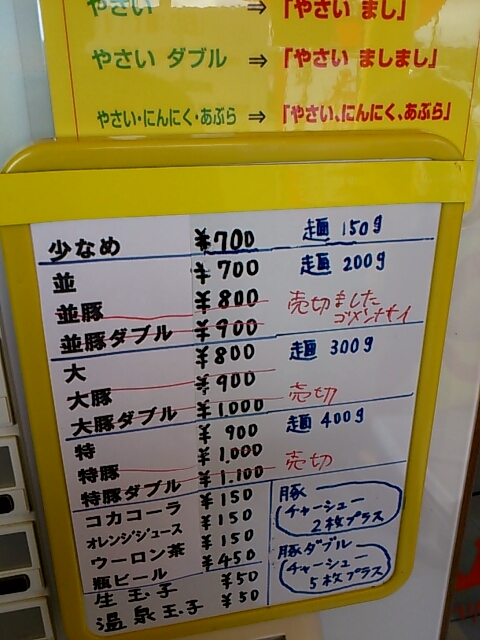 やさい ⇒ 「やさい まし」
やさい ダブル ⇒ 「やさい ましまし」
やさい・にんにく・あぶら ⇒ 「やさい、にんにく、あぶら」
少なめ ¥700 麺 150g
並 ¥700 麺 200g
並豚 ¥800 売切ました
並豚ダブル ¥900 ゴメンナサイ
大 ¥800 麺 300g
大豚 ¥900
大豚ダブル ¥1,000 売切
特 ¥900 麺 400g
特豚 ¥1,000
特豚ダブル ¥1,100 売切
コカコーラ ¥150
オレンジジュース ¥150
ウーロン茶 ¥150
瓶ビール ¥450
生玉子 ¥50
温泉玉子 ¥50
豚
チャーシュー
2枚プラス
豚ダブル
チャーシュー
5枚プラス